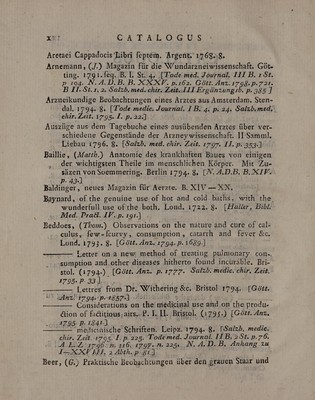 CATALOGUS
Aretaei Cappadocis Libri septem. Argent. 1768. 8.
Arnemann, (J.) Magazin für die Wundarzneiwissenschaft. Göt-
ting. 1791. seq. B. I. St. 4. [Tode med. Journal. III B. 1 St.
p. 104. N. A. D. B. B. XXXV. p. 162. Gött. Anz. 1798. p. 721.
B II. St. 1. 2. Salzb. med. chir. Zeit. III Ergänzungsb. p. 385 ]
Arzneikundige Beobachtungen eines Arztes aus Amsterdam. Sten-
dal. 1794. 8. [Tode medic. Journal. I B. 4. p. 24. Salzb. med.
chir. Zeit. 1795. I. p. 22.]
Auszüge aus dem Tagebuche eines ausübenden Arztes über ver-
schiedene Gegenstände der Arzneywissenschaft. II Samml.
Liebau 1796. 8. [Salzb. med. chir. Zeit. 1797. II. p. 353.]
Baillie, (Matth.) Anatomie des krankhaften Baues von einigen
der wichtigsten Theile im menschlichen Körper. Mit Zu-
säzen von Soemmering. Berlin 1794. 8. [N. A. D. B. B. XIV.
p. 43.]
Baldinger, neues Magazin für Aerzte. B. XIV — XX.
Baynard, of the genuine use of hot and cold baths, with the
wunderfull use of the both. Lond. 1722. 8. [Haller, Bibl.
Med. Pract. IV. p. 191.]
Beddoes, (Thom.) Observations on the nature and cure of cal-
culus, sew-scurvy, consumption, catarrh and fever &c.
Lond. 1793. 8. [Gött. Anz. 1794. p. 1689.]
——— Letter on a new method of treating pulmonary con-
sumption and other diseases hitherto found incurable. Bri-
stol. (1794.) [Gött. Anz. p. 1777. Salzb. medic. chir. Zeit.
1795. p 33.]
——— Lettres from Dr. Withering &c. Bristol 1794. [Gött.
Anz. 1794. p. 1857.]
——— Considerations on the medicinal use and on the produ-
ction of factitious airs. P. I. II. Bristol. (1795.) [Gött. Anz.
1795. p. 1841.]
——— medicinische Schriften. Leipz. 1794. 8. [Salzb. medic.
chir. Zeit. 1795. I. p. 225. Tode med. Journal. II B. 2 St. p. 76.
A. L. Z. 1796. n. 116. 1797. n. 225. N. A. D. B. Anhang zu
I—XXVIII. 2 Abth. p 81.]
Beer, (G.) Praktische Beobachtungen über den grauen Staar und